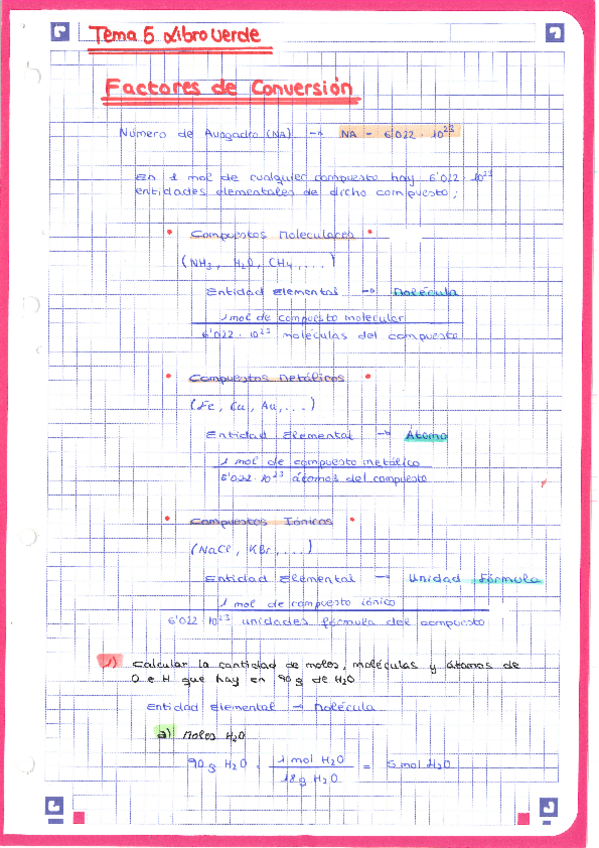 Tema 5 Libro verde
Factores de Conversión
Número de Avogadro (NA) → NA = 6'022 · 10²³
En 1 mol de cualquier compuesto hay 6'022 · 10²³
entidades elementales de dicho compuesto;
• Compuestos Moleculares •
(NH₃, H₂O, CH₄, ...)
Entidad Elemental → Molécula
1 mol de compuesto molecular
6'022 · 10²³ moléculas del compuesto
• Compuestos Metálicos •
(Fe, Cu, Au, ...)
Entidad Elemental → Átomo
1 mol de compuesto metálico
6'022 · 10²³ átomos del compuesto
• Compuestos Iónicos •
(NaCl, KBr, ...)
Entidad Elemental → Unidad Fórmula
1 mol de compuesto iónico
6'022 · 10²³ unidades fórmula del compuesto
1) Calcular la cantidad de moles, moléculas y átomos de
O e H que hay en 90g de H₂O
Entidad Elemental → Molécula
a) Moles H₂O
90g H₂O · 1 mol H₂O / 18g H₂O = 5 mol H₂O